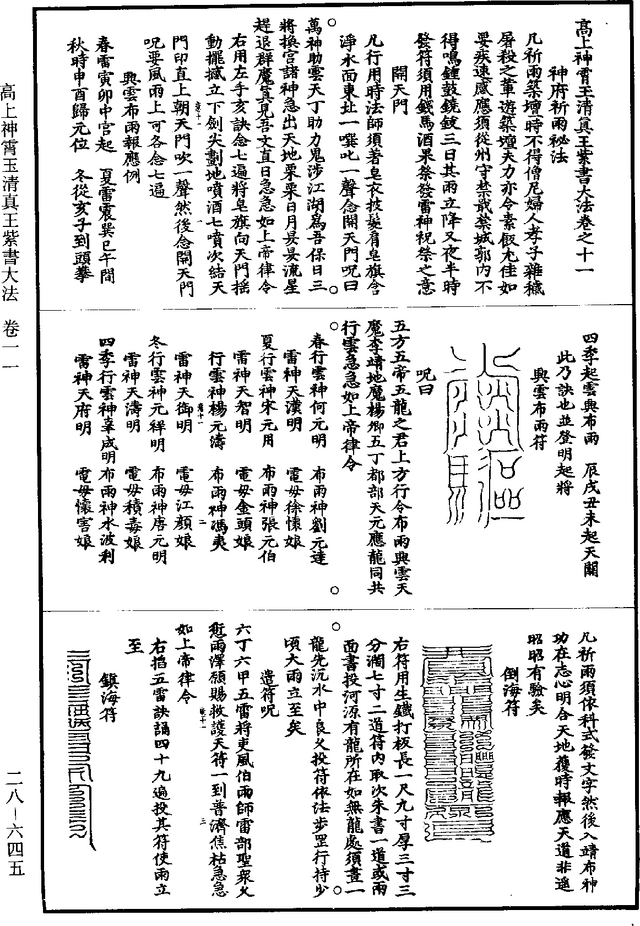 高上神霄玉清真王紫書大法卷之十一
神府祈雨秘法
凡祈雨築壇時不得僧尼婦人孝子雜穢
屠殺之輩遊築壇夫力亦令素假尤佳如
要疾速感應須從州守禁戒禁城郭內不
得鳴鍾鼓鐃鈸三日其雨立降又夜半時
發符須用錢馬酒果祭發雷神祝祭之意
開天門
凡行用時法師須著皂衣披髮肩皂旗含
淨水面東北一噀叱一聲念開天門呪曰
萬神助雲天丁助力鬼涉江湖為吾保日三
將換宮諸神急出天地栗栗日月晏晏流星
趕退群魔莫見吾文直日急急如上帝律令
右用左手亥訣念七遍將皂旗向天門搖
動擺撼立下劍尖劃地噴酒七噴次結天
門印直上朝天門吹一聲然後念開天門
呪要風雨上可各念七遍
興雲布雨報應例
春雷寅卯中宮起　夏雷震巽巳午間
秋時申酉歸元位　冬從亥子到頭擧
四季起雲興布雨　辰戌丑未起天關
此乃訣也並登明起將
興雲布雨符
呪曰
五方五帝五龍之君上方行令布雨興雲天
魔李靖地魔楊卿五丁都部天元應龍同共
行雲急急如上帝律令
春行雲神何元明　布雨神劉元達
雷神天漢明　電母徐懷娘
夏行雲神宋元用　布雨神張元伯
雷神天智明　電母金頭娘
行雲神楊元濤　布雨神馮夷
雷神天御明　電母江顏娘
冬行雲神元祥明　布雨神唐元明
雷神天濤明　電母積毒娘
四季行雲神辜成明　布雨神水波利
雷神天府明　電母懷害娘
凡祈雨須依科式發文字然後入靖布神
功在志心明合天地獲時報應天道非遥
昭昭有驗矣
倒海符
右符用生鐵打板長一尺九寸厚三寸三
分濶七寸二道符內取次朱書一道或兩
面書投河源有龍所在如無龍處須畫一
龍先沉水中良久投符依法步罡行持少
頃大雨立至矣
遣符呪
六丁六甲五雷將吏風伯雨師雷部聖衆久
愆雨澤願賜救護天符一到普濟焦枯急急
如上帝律令
右掐五雷訣誦四十九遍投其符使雨立
至
鎮海符
高上神霄玉清真王紫書大法　卷一一
二八－六四五